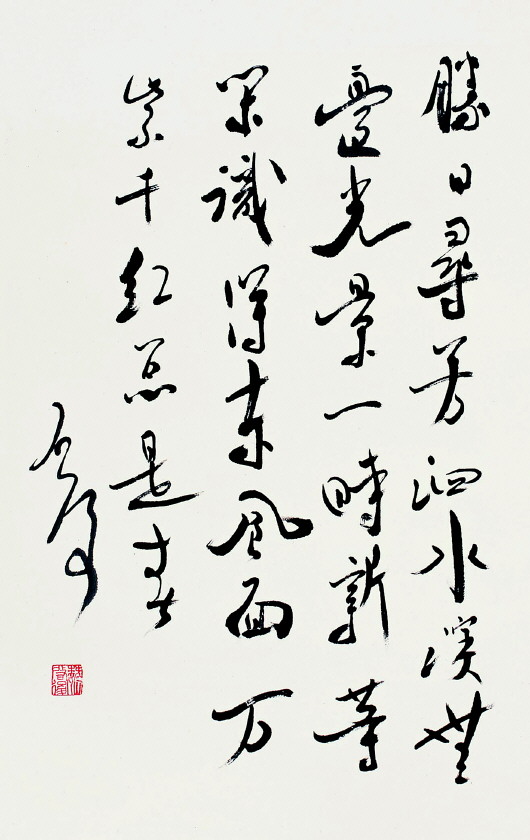 勝日尋芳泗水濱無
邊光景一時新等
閒識得東風面万
紫千紅总是春